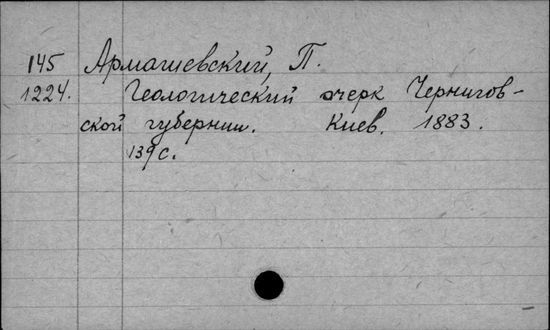 145 Армашевский, П.
1224. Геологический очерк Чернигов-
ской губернии. Киев. 1883.
139 с.